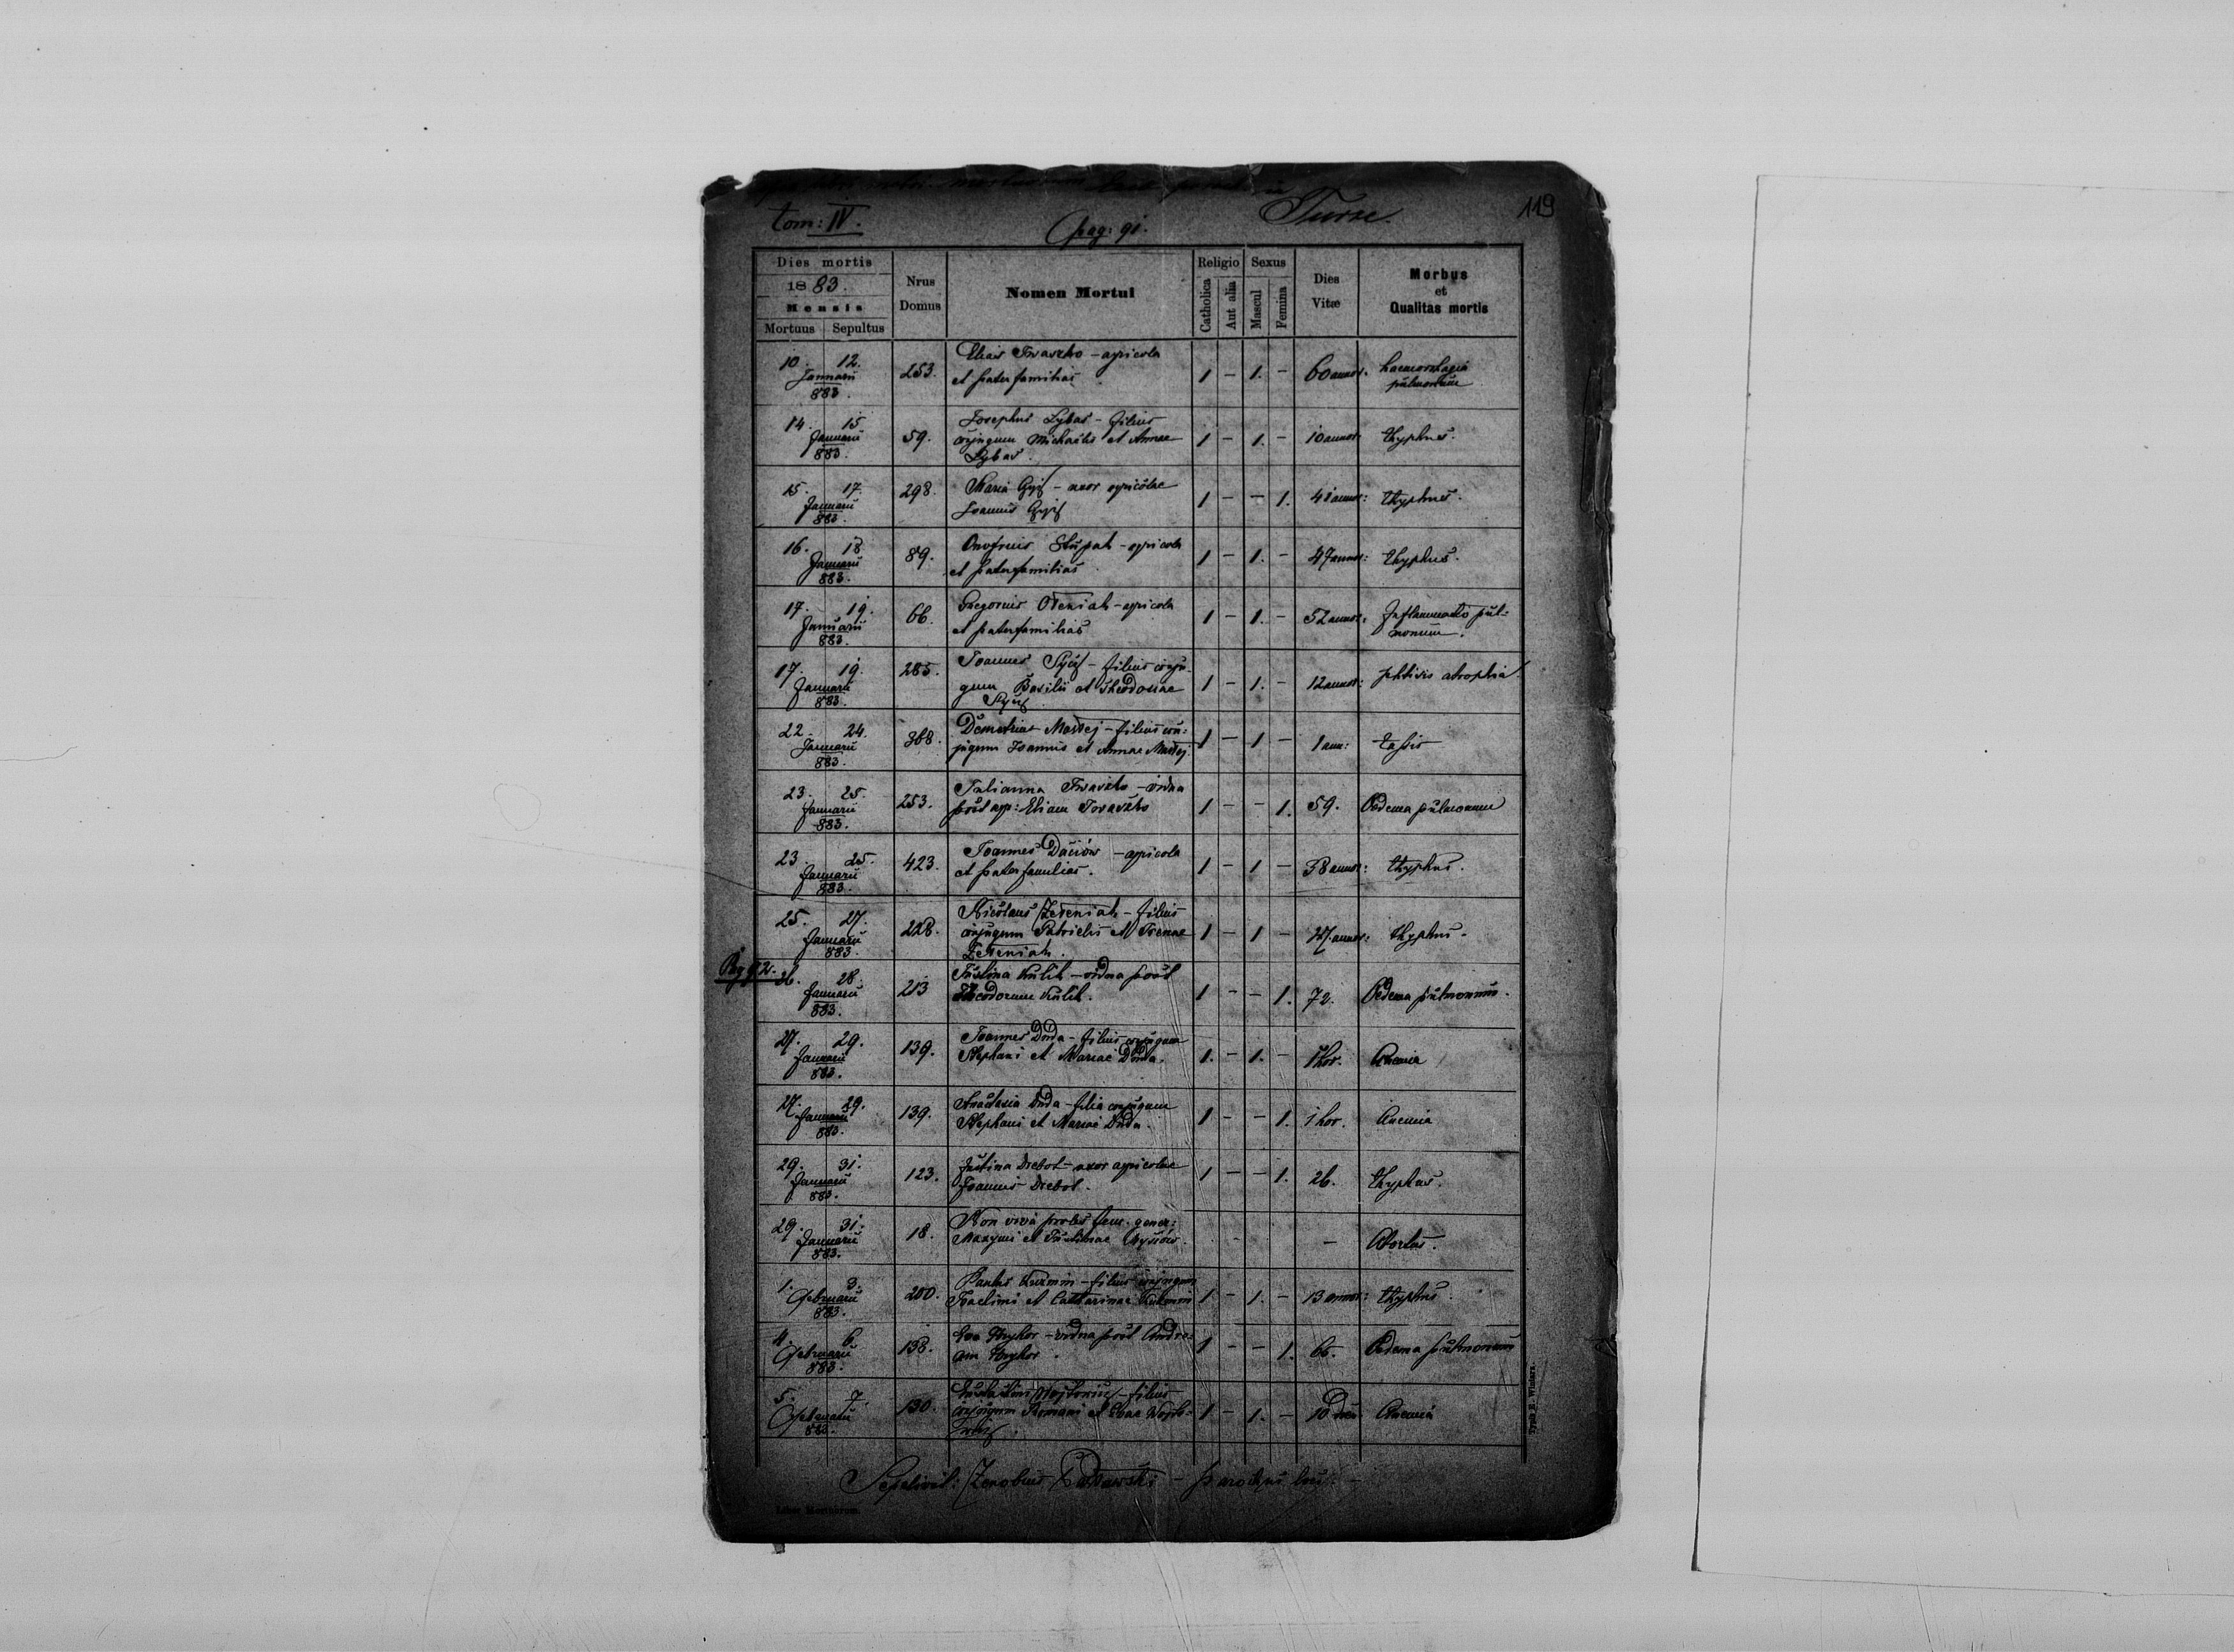 119
tom: IV.
Pag: 91.
Turze.
Dies mortis
1883.
Mensis
Mortuus Sepultus
Nrus Domus
Nomen Mortui
Religio
Catholica
Aut alia
Sexus
Mascul
Femina
Dies Vitæ
Morbus et Qualitas mortis
10. 12. Januarii 883. 253. Elias Iwaszko – agricola 1 – 1. – 60 annor. haemorhagia
et paterfamilias pulmonum
14. 15. Januarii 883. 59. Josephus Lybas – filius 1 – 1. – 10 annor: thyphus.
conjugum Michaelis et Annae
Lybas.
15. 17. Januarii 883. 298. Maria – uxor agricolae 1 – – 1. annor: thyphus.
Joannis
16. 18 Januarii 883. 89. Onofrius Stupak – agricola 1 – 1. – 47 annor: thyphus.
et paterfamilias
17. 19. Januarii 883. 66. Gregorius – agricola 1 – 1. – 52 annor: Inflammatio pul-
et paterfamilias monum.
17. 19. Januarii 883. 285. Joannes – filius conju- 1 – 1. – 12 annor: phtisis atrophia
gum Basilii et Theodosiae
22. 24. Januarii 883. 368. Demetrius – filius con- 1 – 1 – 1 ann: tussis
jugum Joannis et Annae
23. 25. Januarii 883. 253. Julianna Iwaszko – vidua 1 – – 1. 59. Oedema pulmonum
post agr: Eliam Iwaszko
23. 25. Januarii 883. 423. Joannes Daciów – agricola 1 – 1 – 38 annor: thyphus.
et paterfamilias.
25. 27. Januarii 883. 228. Nicolaus Zeleniak – filius 1 – 1 – 27 annor: thyphus.
conjugum Patricii et Irenae
Zeleniak.
Pag 92.
26. 28. Januarii 883. 213 Justina Kulik – vidua post 1 – – 1. 72. Oedema pulmonum.
Theodorum Kulik.
27. 29. Januarii 883. 139. Joannes Duda – filius conjugum 1. – 1. – 1 hor. Anemia
Stephani et Mariae Duda.
27. 29. Januarii 883. 139. Anastasia Duda – filia conjugum 1 – – 1. 1 hor. Anemia
Stephani et Mariae Duda.
29. 31. Januarii 883. 123. Justina Drebot – uxor agricolae 1 – – 1. 26. thyphus.
Joannis Drebot.
29. 31. Januarii 883. 18. Non viva proles fem. gener: – – Abortus.
Maxymi et Justinae
1. 3. Februarii 883. 200. Paulus Kuzmin – filius conjugum 1 – 1. – 13 annor: thyphus.
Joachimi et Catharinae Kuzmin
4. 6. Februarii 883. 138. Eva – vidua post Andre- 1 – – 1. 66. Oedema pulmonum
am
5. 7. Februarii 883. 130. – filius 1 – 1. – 10 Anemia
conjugum Romani et Evae
Sepelivit: Zenobius – parochus
Liber Mortuorum.
Typis E. Winiarz.